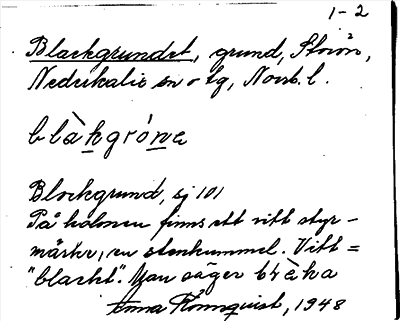 1-2
Blackgrundet, grund, Storön,
Nederkalix sn o tg, Norrb. l.
blàkgróne
Blockgrund, sj 101
På holmen finns ett vitt styr-
märke, en stenkummel. Vitt =
"blackt". Man säger
Rönnqvist, 1948